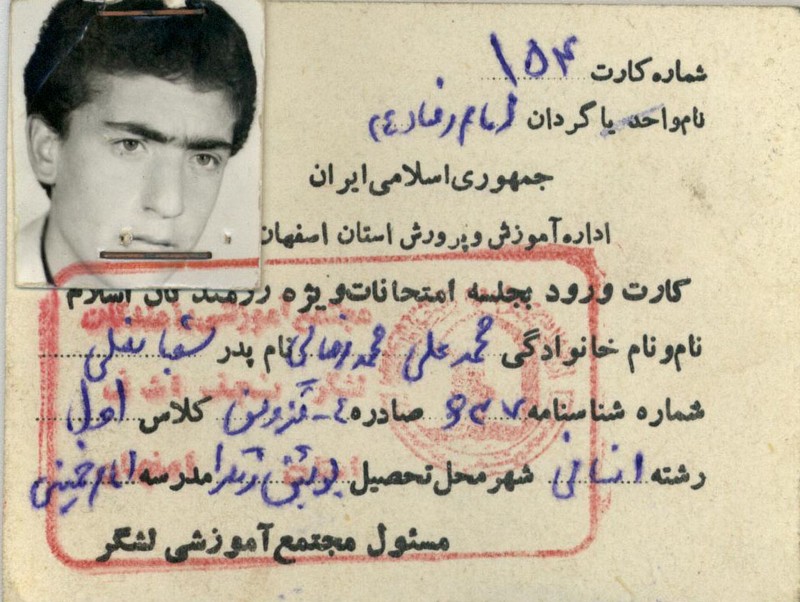 شماره کارت ۱۵۴
نام واحد یا گردان امام رضا (ع)
جمهوری اسلامی ایران
اداره آموزش و پرورش استان اصفهان
کارت ورود بجلسه امتحانات ویژه رزمندگان اسلام
نام و نام خانوادگی محمد علی محمد رضائی نام پدر شعبانعلی
شماره شناسنامه صادره ۴-قزوین کلاس اول
رشته انسانی شهر محل تحصیل بوئین زهرا مدرسه امام خمینی
مسئول مجتمع آموزشی لشگر
مجتمع آموزشی رزمندگان
لشگر